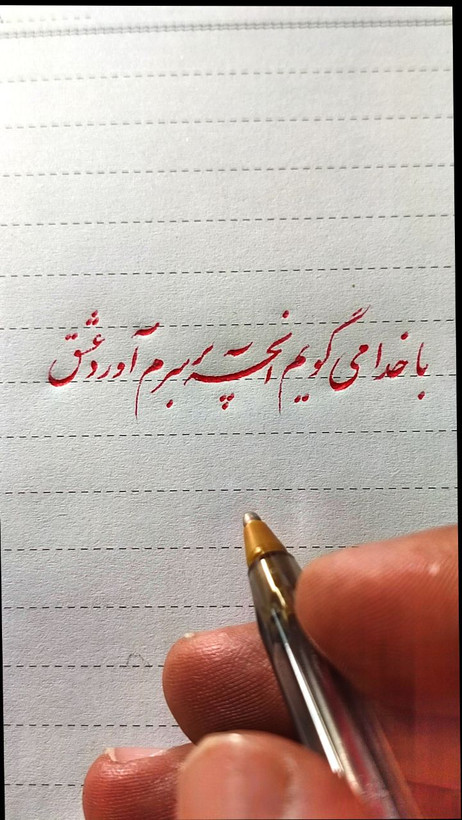 با خدا می گویم آنچه بر سرم آورد عشق